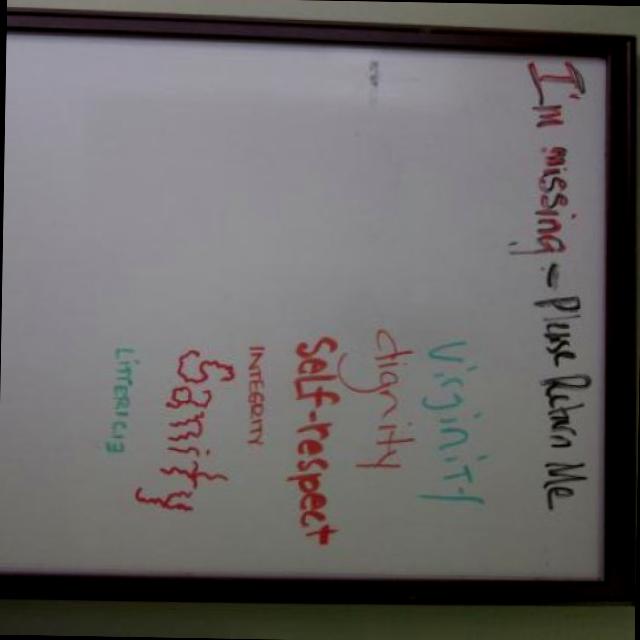 I'm missing - Please Return Me
Virginity
dignity
Self-respect
INTEGRITY
Sanity